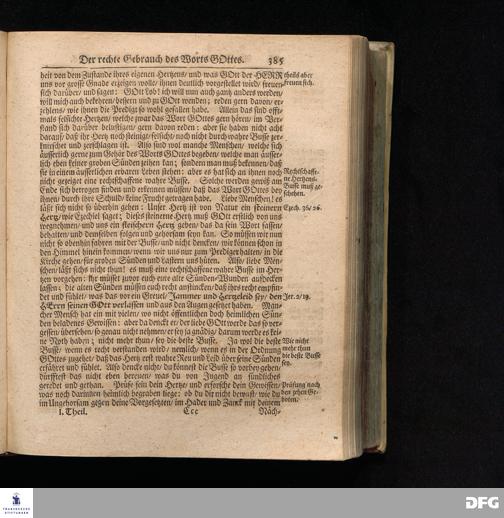 Der rechte Gebrauch des Worts GOttes. 385
heit von dem Zustande ihres eigenen Hertzens/ und was GOtt der HERR
uns vor grosse Gnade erzeigen wolle/ ihnen deutlich vorgestellet wird/ freuen
sich darüber/ und sagen: GOtt Lob! ich will nun auch gantz anders werden/
will mich auch bekehren/ bessern und zu GOtt wenden; reden gern davon/ er-
zehlens/ wie ihnen die Predigt so wohl gefallen habe. Allein das sind oft-
mals felsichte Hertzen/ welche zwar das Wort GOttes gern hören/ im Ver-
stand sich darüber belustigen/ gern davon reden; aber sie haben nicht acht
darauf/ daß ihr Hertz noch steinigt-felsich/ noch nicht durch wahre Busse zer-
knirschet und zerschlagen ist. Also sind wol manche Menschen/ welche sich
äusserlich gerne zum Gehör des Worts GOttes begeben/ welche man äusser-
lich eben keiner groben Sünden zeihen kan; sondern man muß bekennen/ daß
sie in einem äusserlichen erbaren Leben stehen: aber es hat sich an ihnen noch
nicht gezeiget eine rechtschaffene wahre Busse. Solche werden gewiß am
Ende sich betrogen finden und erkennen müssen/ daß das Wort GOttes bey
ihnen/ durch ihre Schuld/ keine Frucht getragen habe. Liebe Menschen! es
läst sich nicht so überhin gehen: Unser Hertz ist von Natur ein steinern
Hertz/ wie Ezechiel saget; dieses steinerne Hertz muß GOtt erstlich von uns
wegnehmen/ und uns ein fleischern Hertz geben/ das da sein Wort fassen/
behalten/ und demselben folgen und gehorsam seyn kan. So müssen wir nun
nicht so obenhin fahren mit der Busse/ und nicht dencken/ wir können schon in
den Himmel hinein kommen/ wenn wir uns nur zum Predigerhalten/ in die
Kirche gehen/ für groben Sünden und Lastern uns hüten. Also/ liebe Men-
schen/ läßt sichs nicht thun! es muß eine rechtschaffene wahre Busse im Her-
tzen vorgehen: ihr müsset zuvor euch eure alte Sünden-Wunden aufdecken
lassen; die alten Sünden müssen euch recht anstincken/ daß ihrs recht empfin-
det und fühlet/ was das vor ein Greuel/ Jammer und Hertzeleid sey/ den
HErrn seinen GOtt verlassen und aus den Augen gesetzet haben. Man-
cher Mensch hat ein mit vielen/ wo nicht öffentlichen doch heimlichen Sün-
den beladenes Gewissen: aber da denckt er/ der liebe GOtt werde das so ver-
gessen/ übersehen/ so genau nicht nehmen/ er sey ja gnädig/ darum werde es kei-
ne Noth haben; nicht mehr thun/ sey die beste Busse. Ja wol die beste
Busse/ wenn es recht verstanden wird/ nemlich/ wenn es in der Ordnung
GOttes zugehet/ daß das Hertz erst wahre Reu und Leid über seine Sünden
erfähret und fühlet. Also dencke nicht/ du könnest die Busse so vorbey gehen/
dürfftest das nicht eben bereuen/ was du von Jugend an sündliches
geredet und gethan. Prüfe fein dein Hertze und erforsche dein Gewissen/
was noch darinnen heimlich begraben liege: ob du dir nicht bewust/ wie du
im Ungehorsam gegen deine Vorgesetzten/ im Hader und Zanck mit deinem
I. Theil. Ccc Näch-
theils aber
freuen sich.
Rechtschaffe-
ne Hertzens-
Busse muß ge-
schehen.
Ezech. 36/26.
Jer. 2/19.
Wie nicht
mehr thun
die beste Busse
sey.
Prüfung nach
den zehen Ge-
boten.
FRANCKESCHE
STIFTUNGEN
DFG